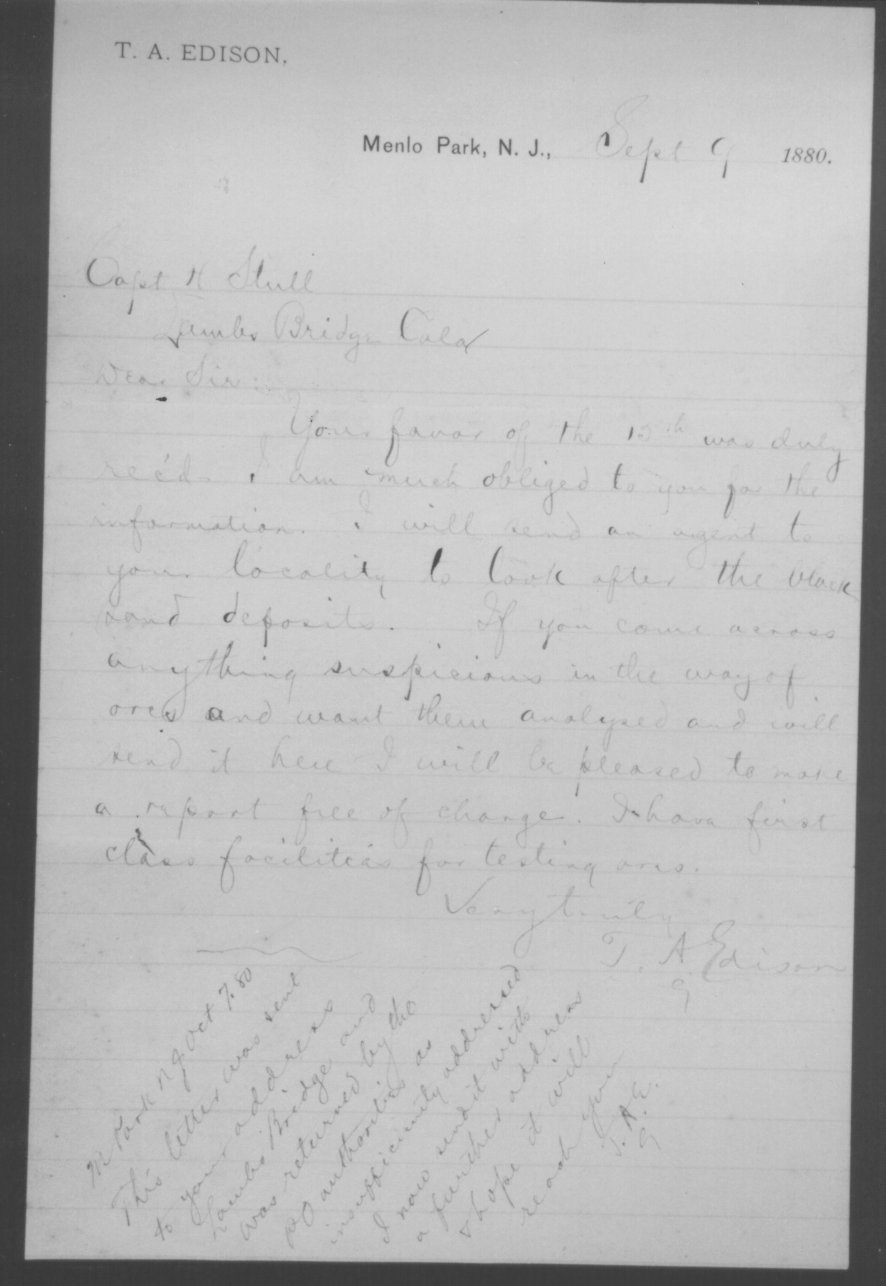 T. A. EDISON.
Menlo Park, N. J., Sept 9 1880.
Capt H Stull
Lambs Bridge Cala
Dear Sir:
Your favor of the 12th was duly
rec'd. I am much obliged to you for the
information. I will send an agent to
your locality to look after the black
sand deposits. If you come across
anything suspicious in the way of
ores and want them analyzed and will
send it here I will be pleased to make
a report free of charge. I have first
class facilities for testing ores.
Very truly
T. A. Edison
M Park N J. Oct 7. 80
This letter was sent
to your address
Lambs Bridge and
was returned by the
PO authorities as
insufficiently addressed
I now send it with
a further address
& hope it will
reach you
T. A. E.